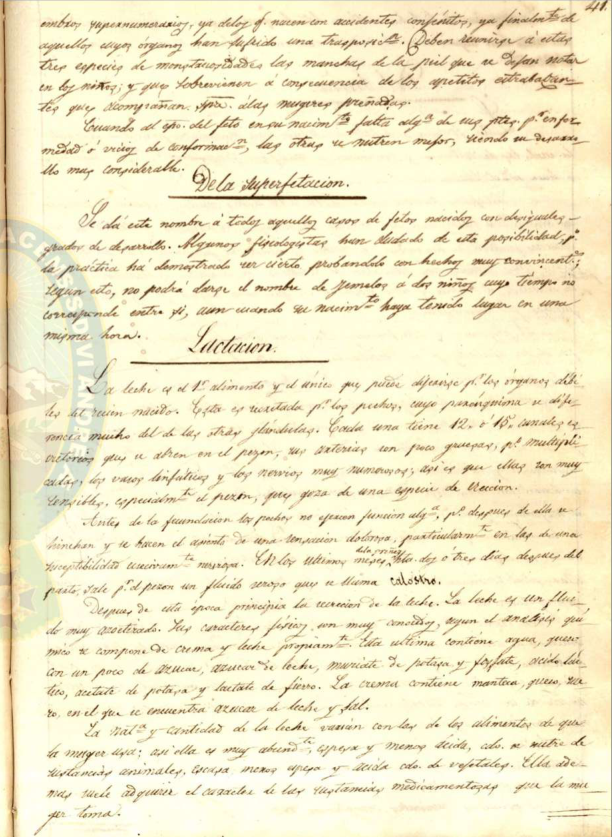 41
embros supernumerarios, ya de los q.e nacen con accidentes conferitos, ya finalm.te de
aquellos cuyos órganos han sufrido una trasposic.n. Deben reunirse á estas
tres especies de monstruosidades las manchas de la piel que se dejan notar
en los niños; y que sobrevienen á consecuencia de los apetitos
que acompañan á las mugeres preñadas.
Cuando al del feto en su nacim.to falta alg.a de sus ptes. p.r enfer
medad ó vicios de conformac.n, las otras se nutren mejor, siendo su desarro-
llo mas considerable.
De la superfetacion.
Se dá este nombre á todos aquellos casos de fetos nacidos con desiguales
grados de desarrollo. Algunos fisiologistas han dudado de esta posibilidad, p.o
la práctica há demostrado ser cierto probandolo con hechos muy convincent.s;
segun esto, no podrá darse el nombre de Jemelos á dos niños cuyo tiempo no
corresponde entre sí, aun cuando su nacim.to haya tenido lugar en una
misma hora.
Lactacion.
La leche es el 1.er alimento y el único que puede dijerirse p.r los órganos débi
les del recien nacido. Esta es secretada p.r los pechos, cuyo parénquima se dife-
rencia mucho del de las otras glándulas. Cada una tiene 12, ó 15, canales es
cretorios que se abren en el pezon; sus arterias son poco gruesas, p.o multipli
cadas, los vasos linfaticos y los nervios muy numerosos; asi es que ellas son muy
sensibles, especialm.te el pezon, que goza de una especie de ereccion.
Antes de la fecundacion los pechos no ejercen funcion alg.a, p.o despues de ella se
hinchan y se hacen el asiento de una sensacion dolorosa, particularm.te en las de una
suceptibilidad nerviosa. En los ultimos meses dos ó tres dias despues del
parto, sale p.r el pezon un fluido seroso que se llama calostro.
Despues de esta época principia la secrecion de la leche. La leche es un flui
do muy azoetizado. Sus caracteres físicos son muy conocidos, segun el análisis quí
mico se compone de crema y leche propiam.te. Esta ultima contiene agua, queso
con un poco de azucar, azucar de leche, muriate de potasa y fosfate, acido lác
tico, acetate de potasa y lactate de fierro. La crema contiene manteca, queso, sue
ro, en el que se encuentra azucar de leche y sal.
La nat.a y cantidad de la leche varian con las de los alimentos de que
la muger usa: asi ella es muy abund.te, espesa y menos ácida, cdo. se nutre de
sustancias animales, escasa menos espesa y acida cdo. de vejetales. Ella ade-
mas suele adquirir el caracter de las sustancias medicamentosas que la mu
ger toma.